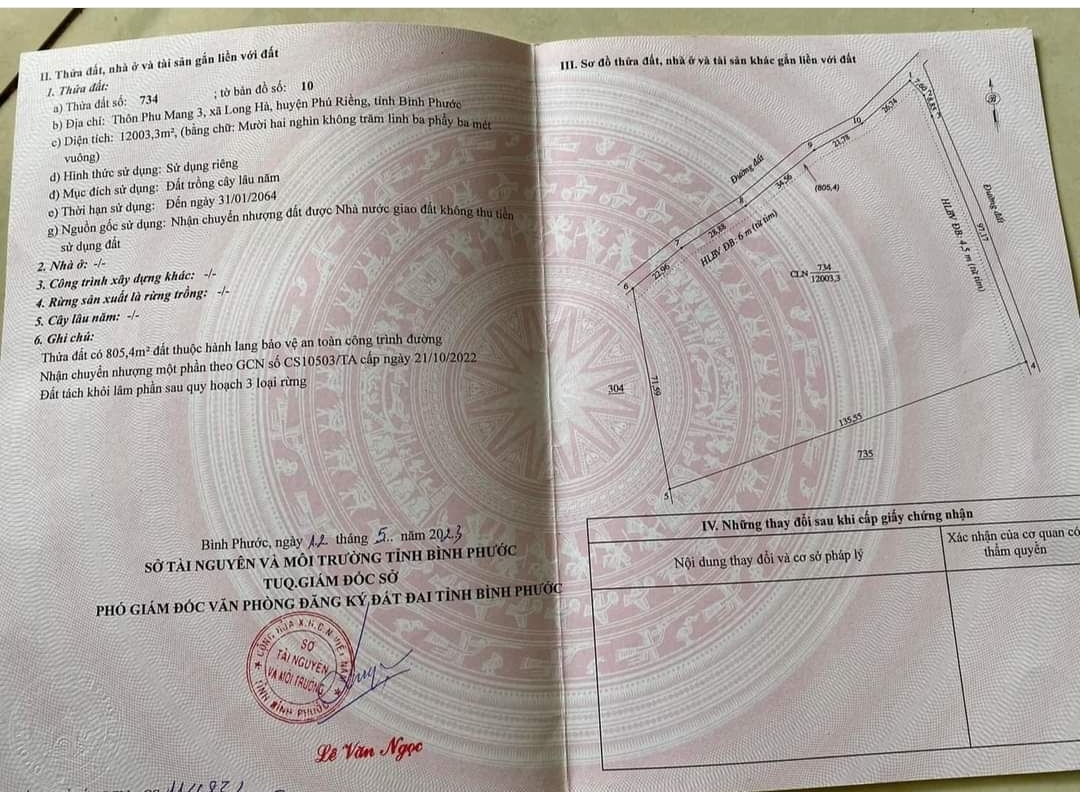 II. Thửa đất, nhà ở và tài sản gắn liền với đất
1. Thửa đất:
a) Thửa đất số: 734 ; tờ bản đồ số: 10
b) Địa chỉ: Thôn Phu Mang 3, xã Long Hà, huyện Phú Riềng, tỉnh Bình Phước
c) Diện tích: 12003,3m², (bằng chữ: Mười hai nghìn không trăm linh ba phẩy ba mét
vuông)
d) Hình thức sử dụng: Sử dụng riêng
đ) Mục đích sử dụng: Đất trồng cây lâu năm
e) Thời hạn sử dụng: Đến ngày 31/01/2064
g) Nguồn gốc sử dụng: Nhận chuyển nhượng đất được Nhà nước giao đất không thu tiền
sử dụng đất
2. Nhà ở: -/-
3. Công trình xây dựng khác: -/-
4. Rừng sản xuất là rừng trồng: -/-
5. Cây lâu năm: -/-
6. Ghi chú:
Thửa đất có 805,4m² đất thuộc hành lang bảo vệ an toàn công trình đường
Nhận chuyển nhượng một phần theo GCN số CS10503/TA cấp ngày 21/10/2022
Đất tách khỏi lâm phần sau quy hoạch 3 loại rừng
Bình Phước, ngày 12 tháng 5.. năm 2023
SỞ TÀI NGUYÊN VÀ MÔI TRƯỜNG TỈNH BÌNH PHƯỚC
TUQ.GIÁM ĐỐC SỞ
PHÓ GIÁM ĐỐC VĂN PHÒNG ĐĂNG KÝ ĐẤT ĐAI TỈNH BÌNH PHƯỚC
CỘNG HÒA X.H.C.N VIỆT NAM
SỞ
TÀI NGUYÊN
VÀ MÔI TRƯỜNG
TỈNH BÌNH PHƯỚC
Lê Văn Ngọc
III. Sơ đồ thửa đất, nhà ở và tài sản khác gắn liền với đất
1
7,60
26,74
10
21,78
9
(805,4)
34,56
Đường đất
8
28,88
HLBV ĐB: 6 m (từ tim)
7
22,96
6
Đường đất
97,17
HLBV ĐB: 4,5 m (từ tim)
CLN 734
12003,3
304
71,59
4
135,55
735
5
IV. Những thay đổi sau khi cấp giấy chứng nhận
Nội dung thay đổi và cơ sở pháp lý
Xác nhận của cơ quan có
thẩm quyền